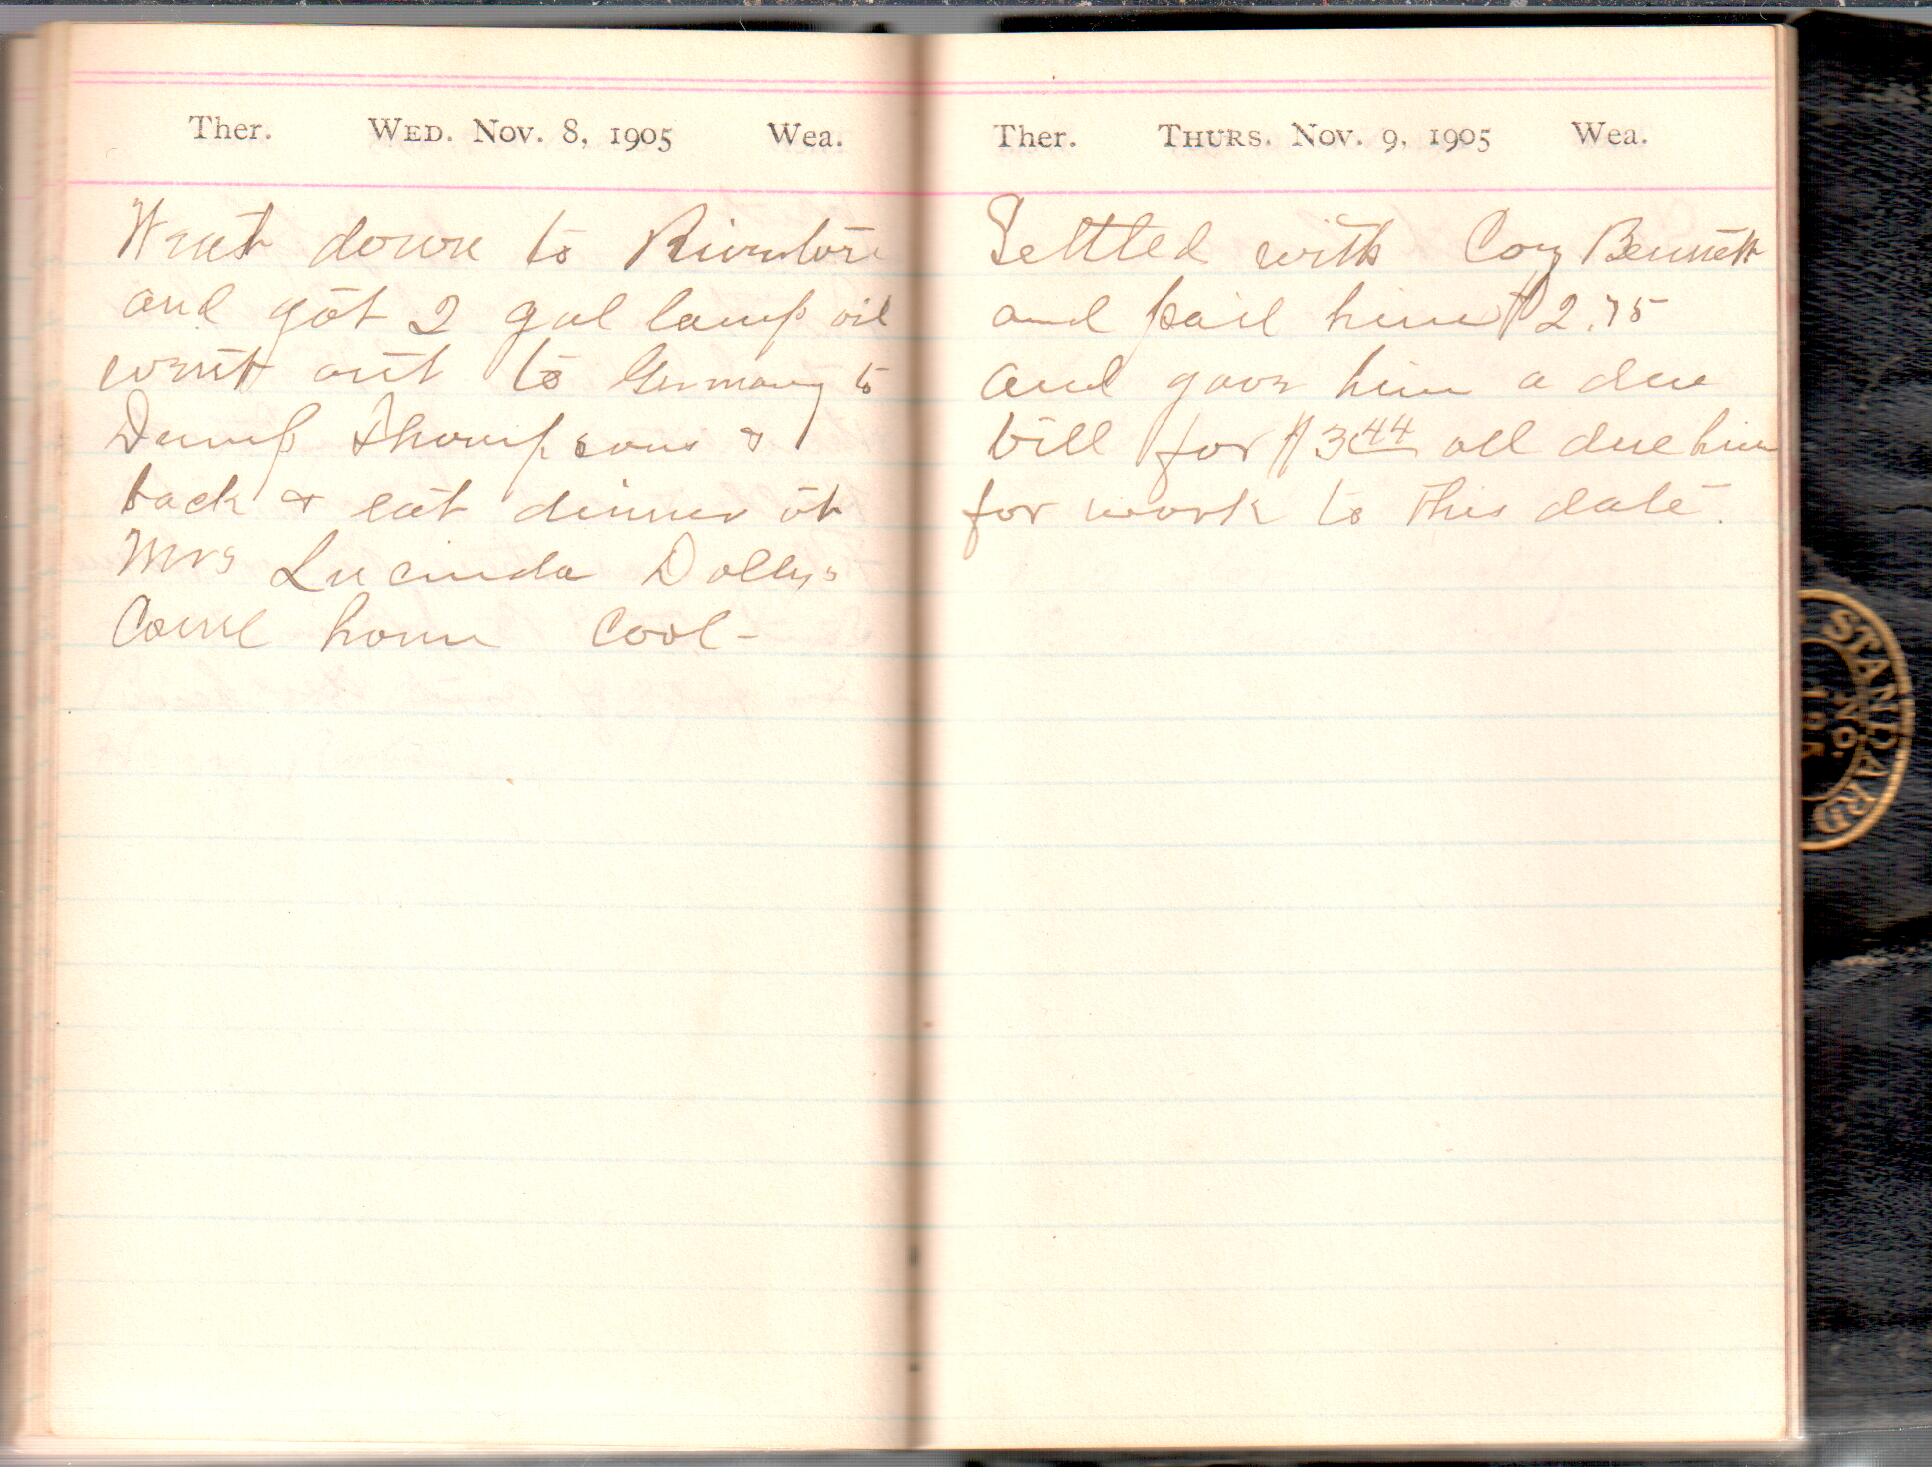 Ther. WED. Nov. 8, 1905 Wea.
Went down to Riverton
and got 2 gal lamp oil
went out to Germany to
Dump Thompsons &
back & eat dinner at
Mrs Lucinda Dollys
Came home Cool-
Ther. THURS. Nov. 9, 1905 Wea.
Settled with Coy Bennett
and paid him $2.75
and gave him a due
bill for $3.44 all due him
for work to this date.
STANDARD
NO.